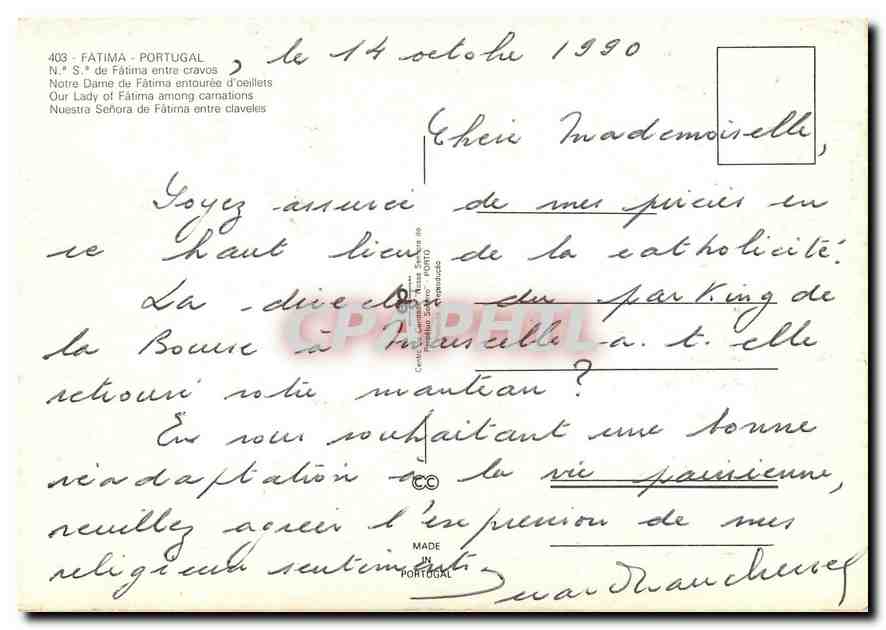 403 - FÁTIMA - PORTUGAL
N.ª S.ª de Fátima entre cravos
Notre Dame de Fátima entourée d'oeillets
Our Lady of Fátima among carnations
Nuestra Señora de Fátima entre claveles
, le 14 octobre 1990
Chère Mademoiselle,
Soyez assurée de mes prières en
ce haut lieu de la catholicité.
La direction du parking de
la Bourse à Marseille a-t-elle
retrouvé votre manteau ?
En vous souhaitant une bonne
réadaptation à la vie parisienne,
veuillez agréer l'expression de mes
religieux sentiments.
CC
MADE
IN
PORTUGAL
CPAPHIL